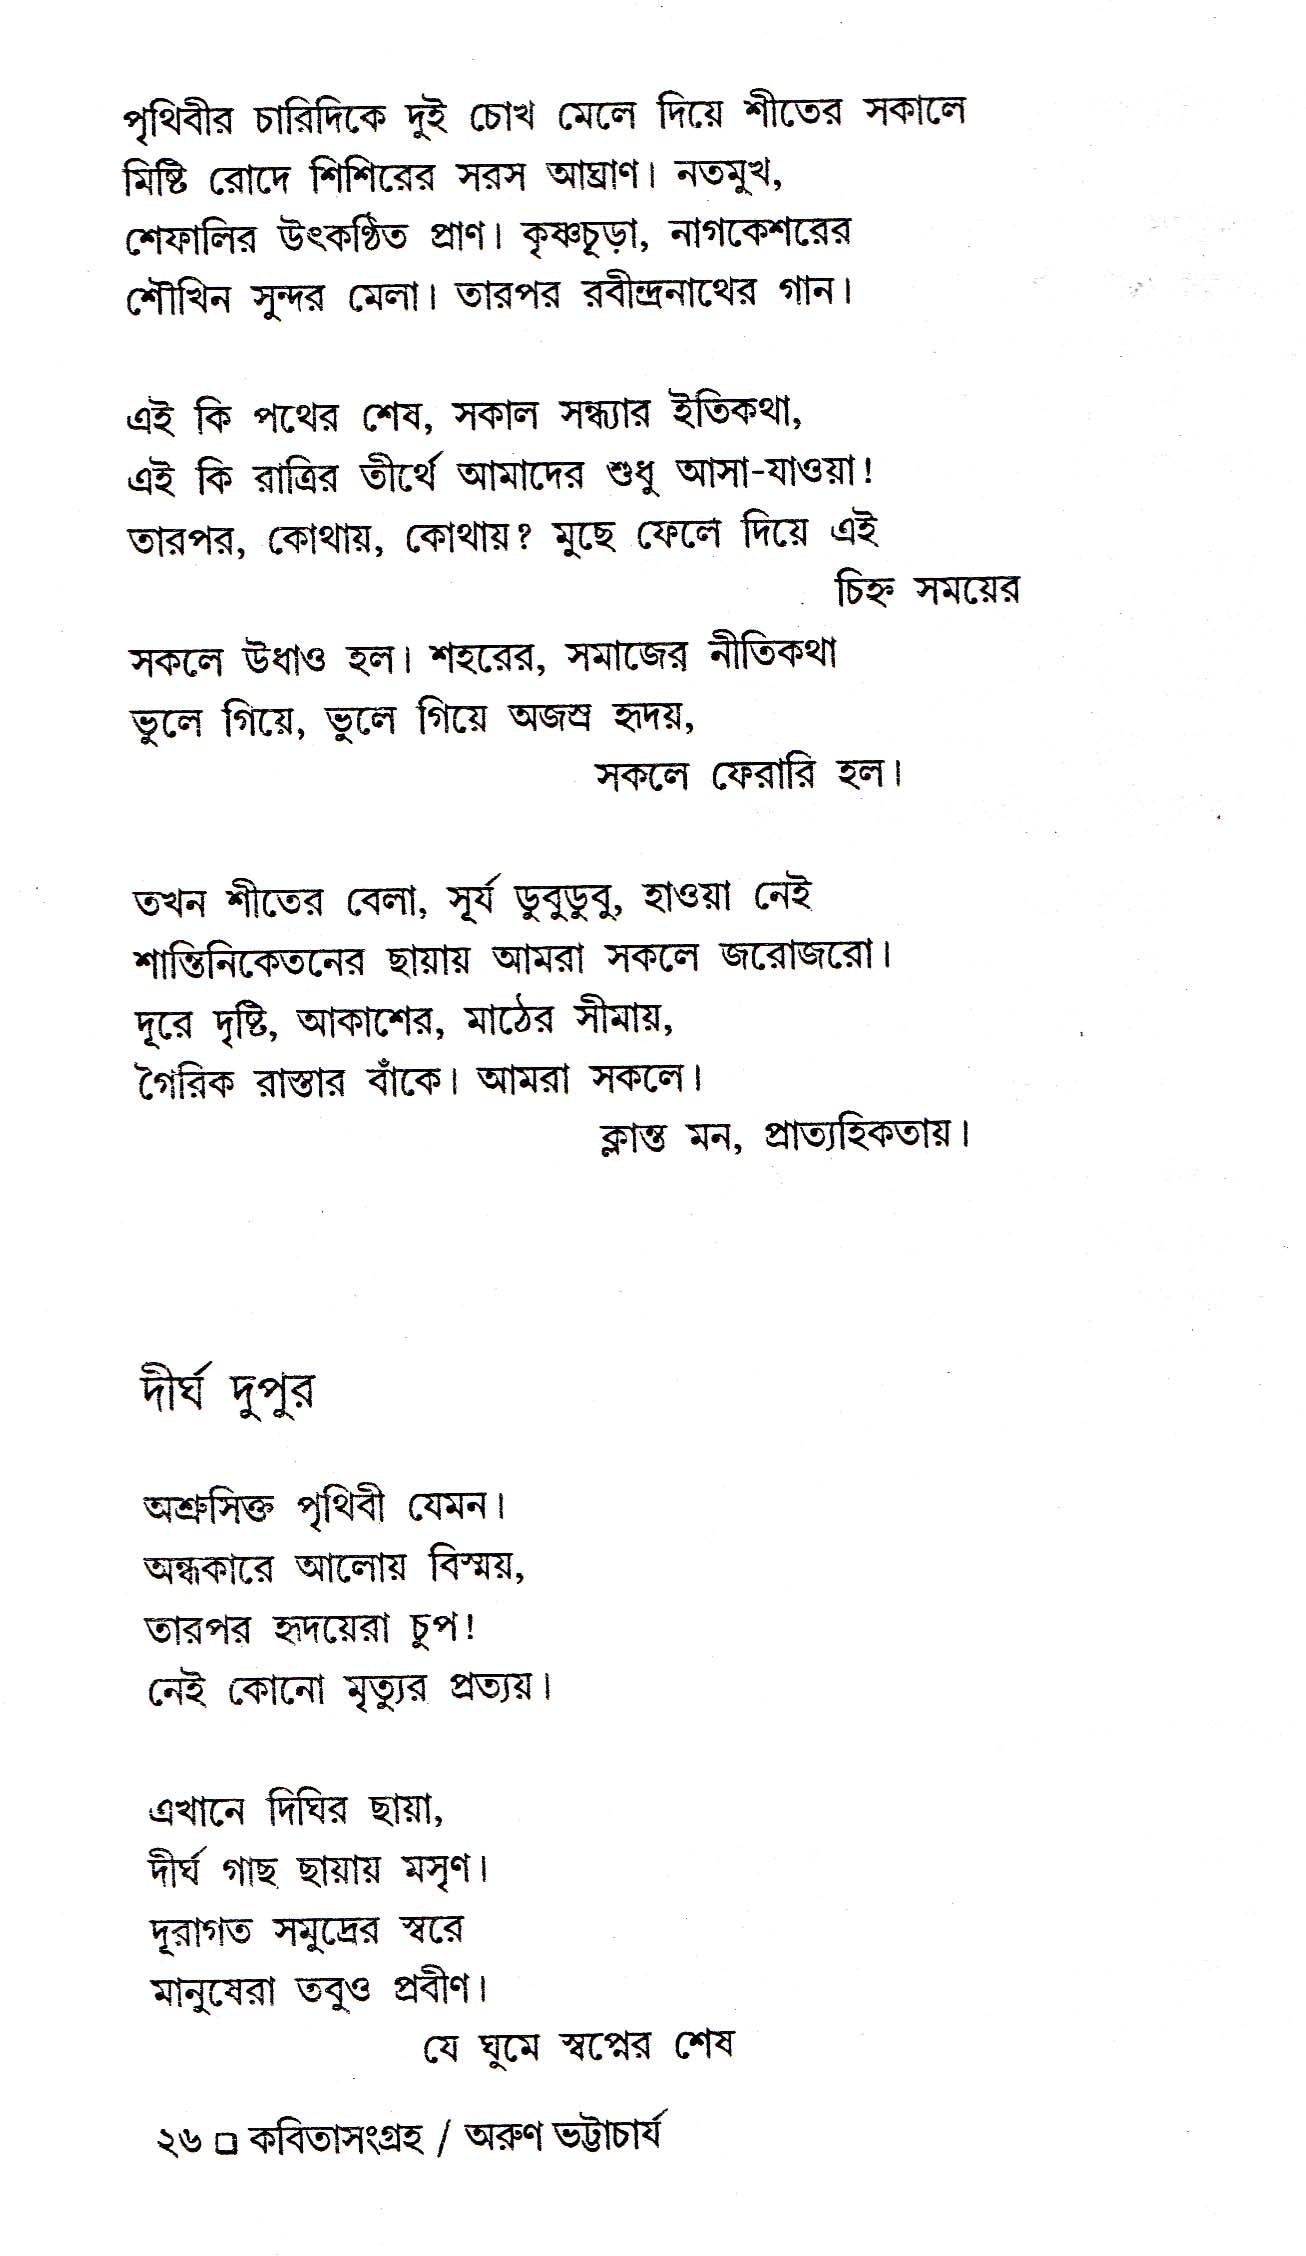 পৃথিবীর চারিদিকে দুই চোখ মেলে দিয়ে শীতের সকালে
মিষ্টি রোদে শিশিরের সরস আঘ্রাণ। নতমুখ,
শেফালির উৎকণ্ঠিত প্রাণ। কৃষ্ণচূড়া, নাগকেশরের
শৌখিন সুন্দর মেলা। তারপর রবীন্দ্রনাথের গান।
এই কি পথের শেষ, সকাল সন্ধ্যার ইতিকথা,
এই কি রাত্রির তীর্থে আমাদের শুধু আসা-যাওয়া!
তারপর, কোথায়, কোথায়? মুছে ফেলে দিয়ে এই
চিহ্ন সময়ের
সকলে উধাও হল। শহরের, সমাজের নীতিকথা
ভুলে গিয়ে, ভুলে গিয়ে অজস্র হৃদয়,
সকলে ফেরারি হল।
তখন শীতের বেলা, সূর্য ডুবুডুবু, হাওয়া নেই
শান্তিনিকেতনের ছায়ায় আমরা সকলে জরোজরো।
দূরে দৃষ্টি, আকাশের, মাঠের সীমায়,
গৈরিক রাস্তার বাঁকে। আমরা সকলে।
ক্লান্ত মন, প্রাত্যহিকতায়।
দীর্ঘ দুপুর
অশ্রুসিক্ত পৃথিবী যেমন।
অন্ধকারে আলোয় বিস্ময়,
তারপর হৃদয়েরা চুপ!
নেই কোনো মৃত্যুর প্রত্যয়।
এখানে দিঘির ছায়া,
দীর্ঘ গাছ ছায়ায় মসৃণ।
দূরাগত সমুদ্রের স্বরে
মানুষেরা তবুও প্রবীণ।
যে ঘুমে স্বপ্নের শেষ
২৬ □ কবিতাসংগ্রহ / অরুণ ভট্টাচার্য